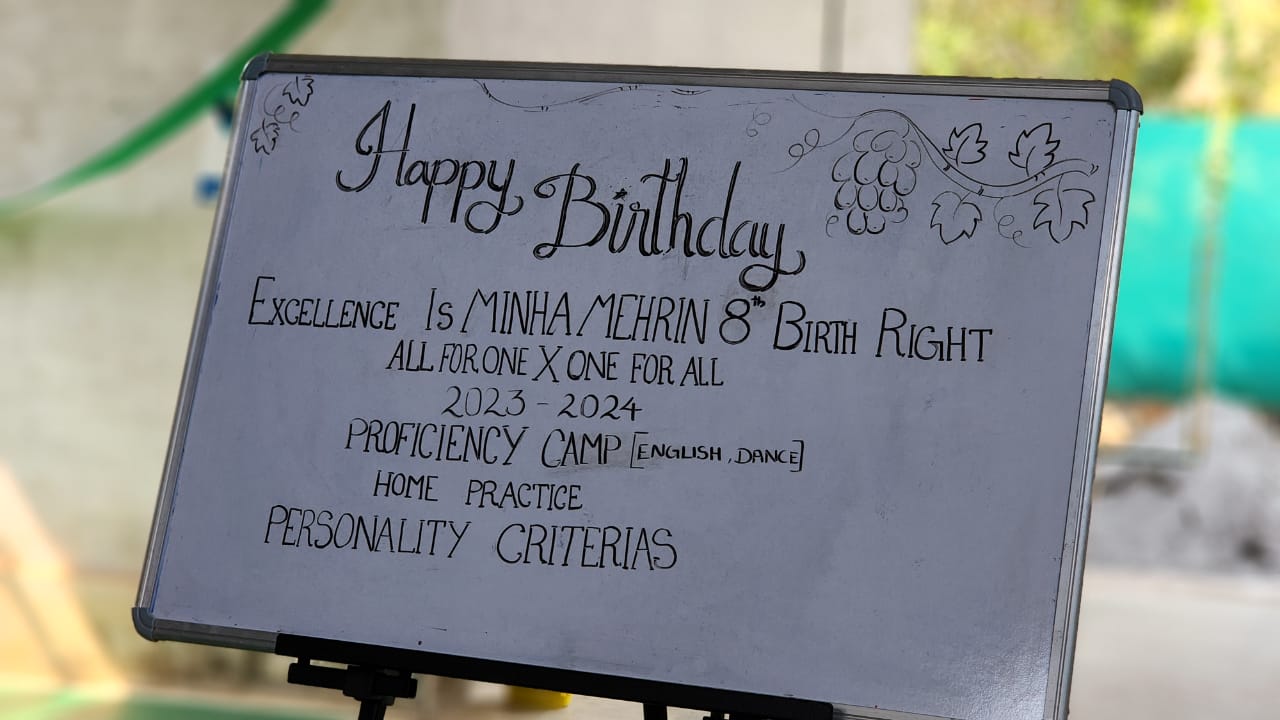 Happy Birthday
EXCELLENCE IS MINHA MEHRIN 8th BIRTH RIGHT
ALL FOR ONE X ONE FOR ALL
2023-2024
PROFICIENCY CAMP [ENGLISH, DANCE]
HOME PRACTICE
PERSONALITY CRITERIAS